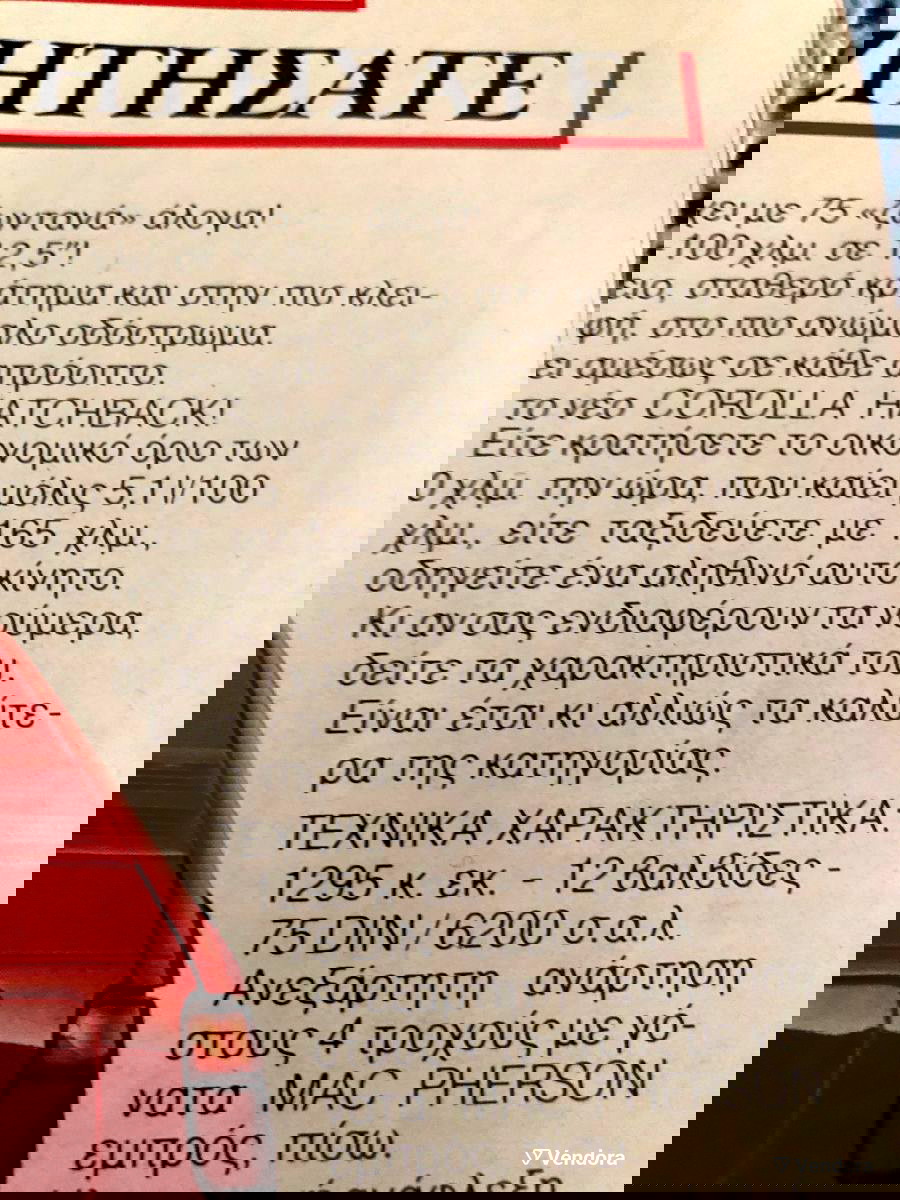 ΖΗΤΗΣΑΤΕ
χει με 75 «ζωντανά» άλογα!
100 χλμ. σε 12,5"!
κράτημα και στην πιο κλει-
σταθερό
στο πιο ανώμαλο οδόστρωμα.
ει αμέσως σε κάθε απρόοπτο.
το νέο COROLLA HATCHBACK!
Είτε κρατήσετε το οικονομικό όριο των
0 χλμ. την ώρα, που καίει μόλις 5,1 l/100
χλμ., είτε ταξιδεύετε με 165 χλμ.,
οδηγείτε ένα αληθινό αυτοκίνητο.
Κι αν σας ενδιαφέρουν τα νούμερα,
δείτε τα χαρακτηριστικά του.
Είναι έτσι κι αλλιώς τα καλύτε-
ρα της κατηγορίας.
ΤΕΧΝΙΚΑ ΧΑΡΑΚΤΗΡΙΣΤΙΚΑ:
1295 κ. εκ. - 12 βαλβίδες -
75 DIN / 6200 σ.α.λ.
Ανεξάρτητη ανάρτηση
στους 4 τροχούς με γό-
νατα MAC PHERSON
εμπρός, πίσω.
Vendora